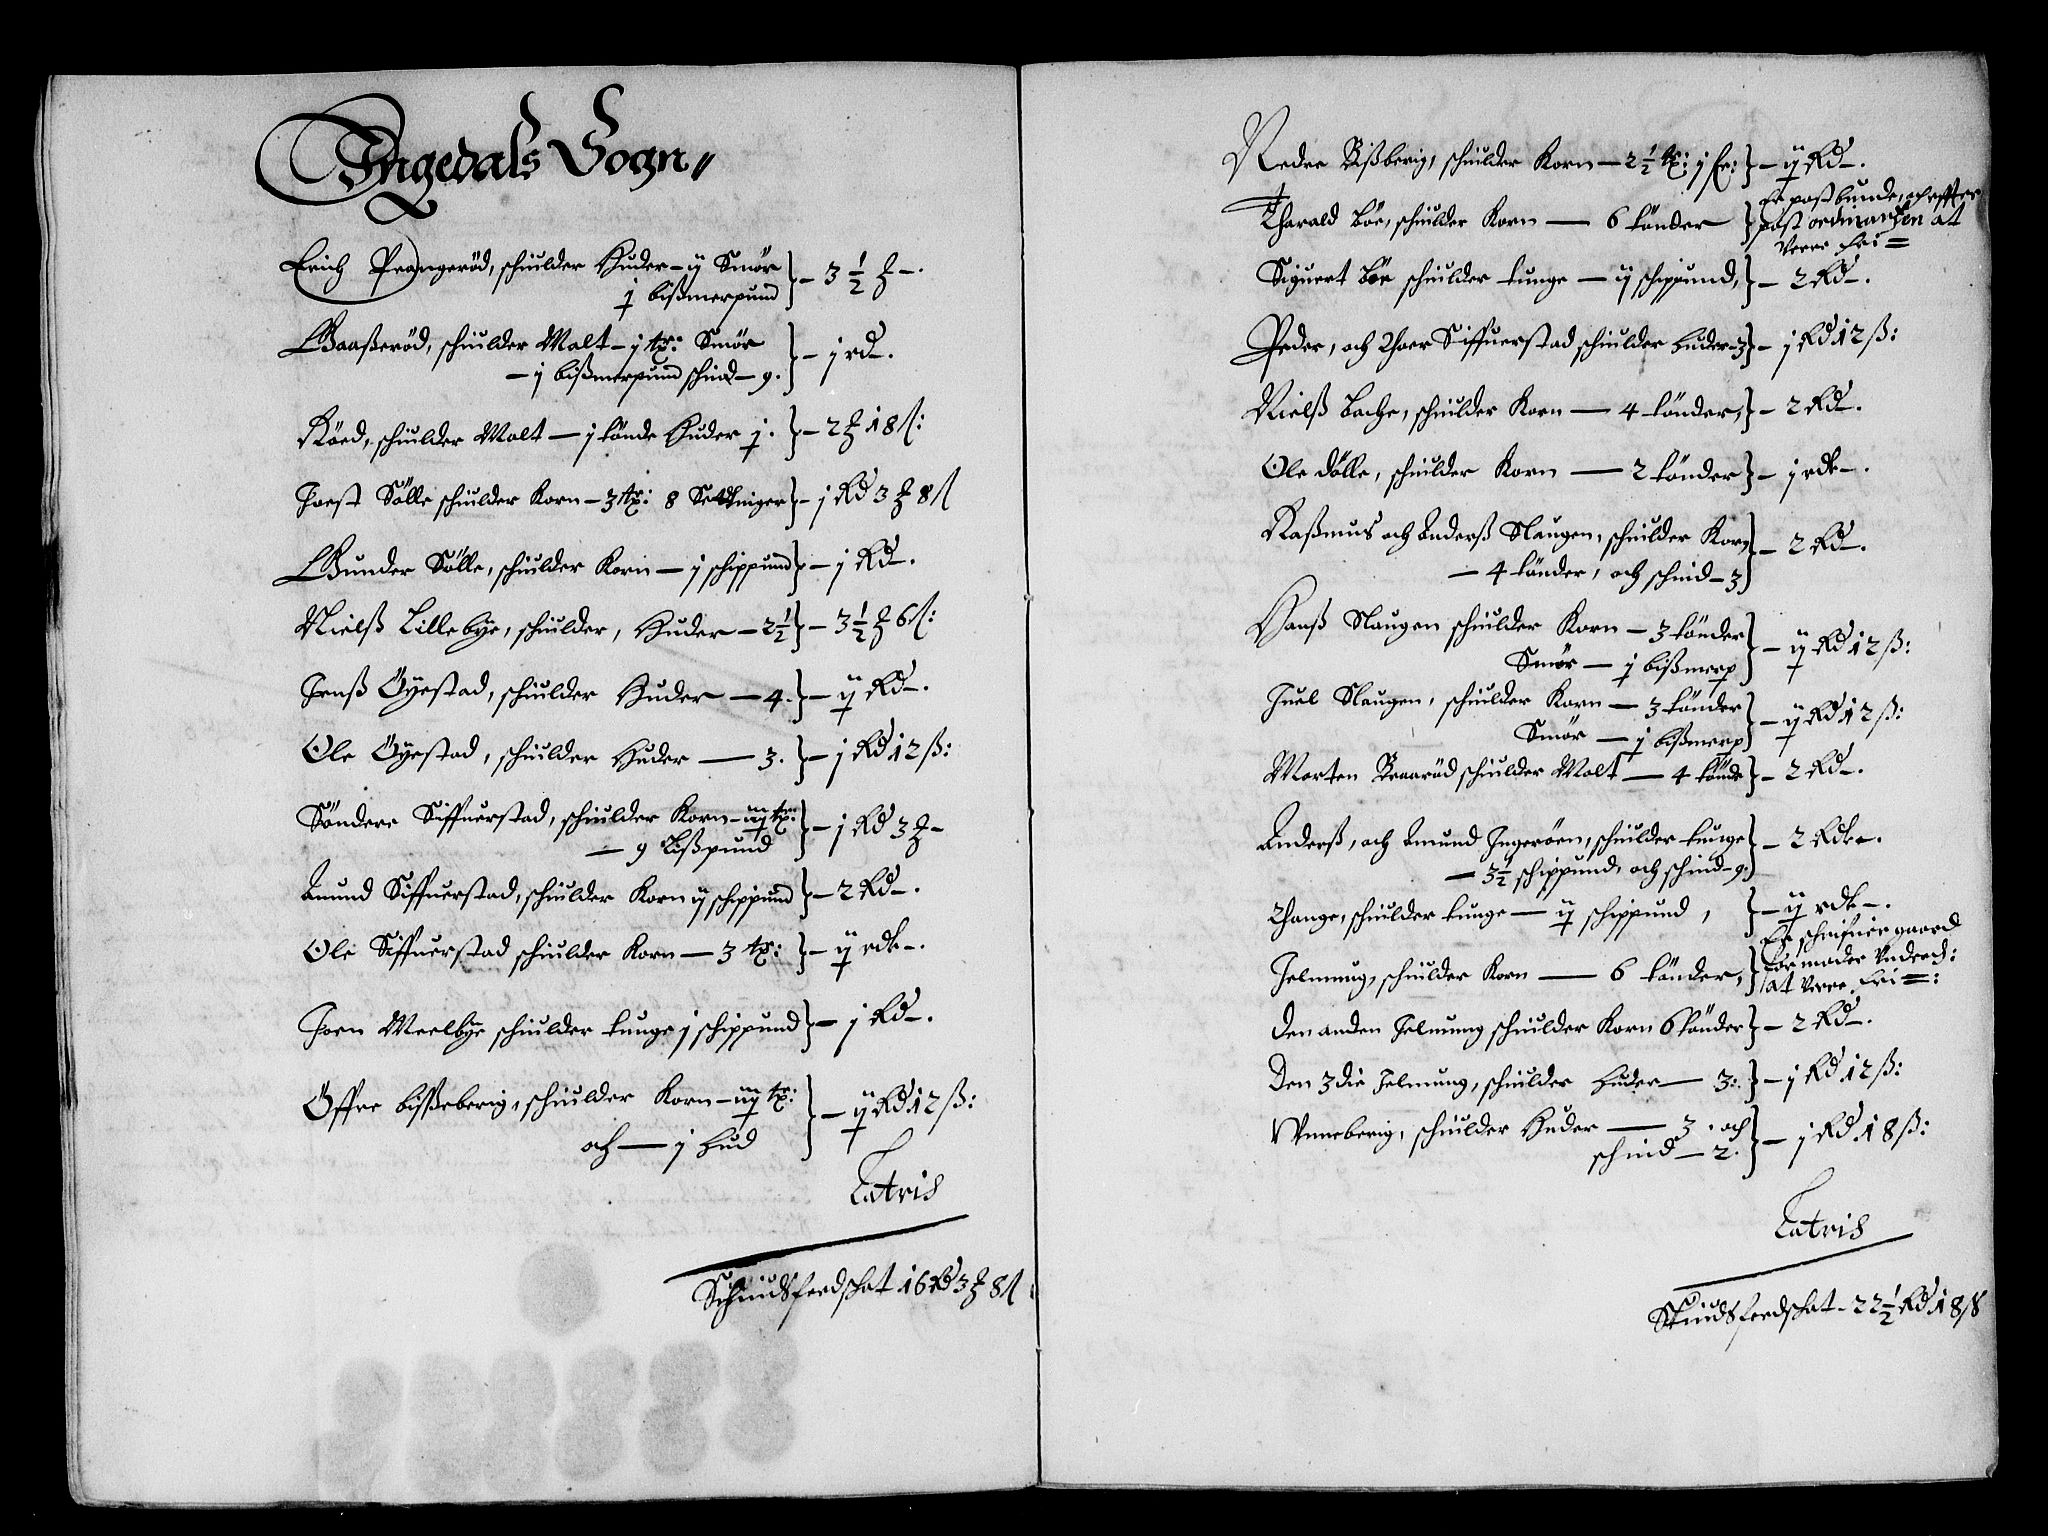 Ingedals Sogn
Erich Prangeröd, schiulder Huder - ij Smör
j bißmerpund } - 3 1/2 ℥ -.
Gaaßeröd, schiulder Malt - j tx: Smör
- j bißmerpund schind - 9. } - j rd -.
Röed, schiulder Malt - j tönde Huder j. } - 2 ℥ 18 ß:
Joest Sölle schiulder Korn - 3 tx: 8 Settinger } - j Rd 3 ℥ 8 ß
Gunder Sölle, schiulder Korn - j schippund } - j Rd -.
Nielß Lillebÿe, schiulder, Huder - 2 1/2 } - 3 1/2 ℥ 6 ß:
Jenß Öÿestad, schiulder Huder - 4. } - ij Rd -.
Ole Öÿestad, schiulder Huder - 3. } - j Rd 12 ß:
Söndere Siffuerstad, schiulder Korn - iiij tx:
- 9 Lißpund } - j Rd 3 ℥ -
Amund Siffuerstad, schiulder Korn ij schippund } - 2 Rd -.
Ole Siffuerstad schiulder Korn - 3 tx: } - ij rdr -.
Joen Meelbÿe schiulder tunge j schippund } - j Rd -.
Öffre bißeberig, schiulder Korn - iiij tx:
och - j Hud } - ij Rd 12 ß:
Latris
Schiudsferdschat 16 Rd 3 ℥ 8 ß
Nedre Bißberig, schiulder Korn - 2 1/2 tx: j fr: } - ij Rd -.
Tharald Böe, schiulder Korn - 6 tönder } Er postbunde, och effter
post ordinantzen at
verre fri =
Siguert Böe schiulder tunge - ij schippund, } - 2 Rd -.
Peder, och Thoer Siffuerstad schiulder huder - 3 } - j Rd 12 ß:
Nielß Bache, schiulder Korn - 4 tönder, } - 2 Rd -.
Ole dölle, schiulder Korn - 2 tönder } - j rdr -.
Raßmus och Anderß Slaugen, schiulder Korn
- 4 tönder, och schind - 3 } - 2 Rd -.
Hanß Slaugen schiulder Korn - 3 tönder
Smör - j bißmerp } - ij Rd 12 ß:
Juel Slaugen, schiulder Korn - 3 tönder
Smör - j bißmerp } - ij Rd 12 ß:
Morten Braaröd schiulder Malt - 4 tönde } - 2 Rd -.
Anderß, och Amund Ingeröen, schiulder tunge
- 3 1/2 schippund, och schind - 9. } - 2 Rdr -.
Thange, schiulder tunge - ij schippund, } - ij rdr -.
Jelmung, schiulder Korn - 6 tönder, } Er schrifuer gaard
formoder
at verre fri =:
Den anden Jelmung schiulder Korn 6 tönder } - 2 Rd -.
Den 3die Jelmung, schiulder huder - 3: } - j Rd 12 ß:
Vnneberig, schiulder Huder - 3. och
schind - 2. } - j Rd 18 ß:
Latris
Skiudsferdschat - 22 1/2 Rd 18 ß